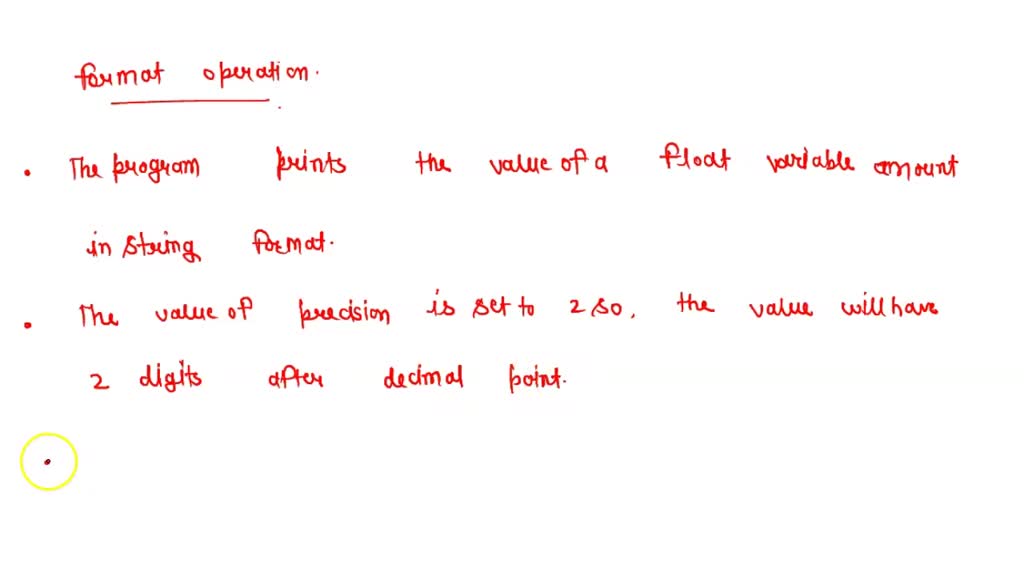 format operation.
• The program prints the value of a float variable amount
in string format.
• The value of precision is set to 2 so, the value will have
2 digits after decimal point.
•